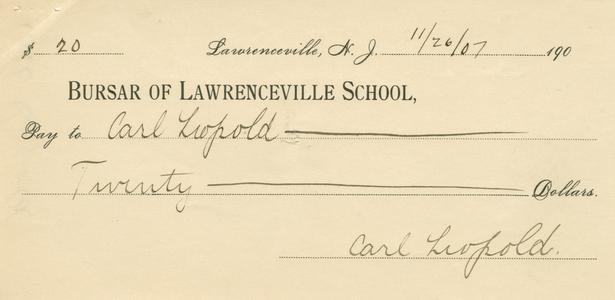 $ 20 Lawrenceville, N. J. 11/26/07 190
BURSAR OF LAWRENCEVILLE SCHOOL,
Pay to Carl Leopold
Twenty Dollars.
Carl Leopold.